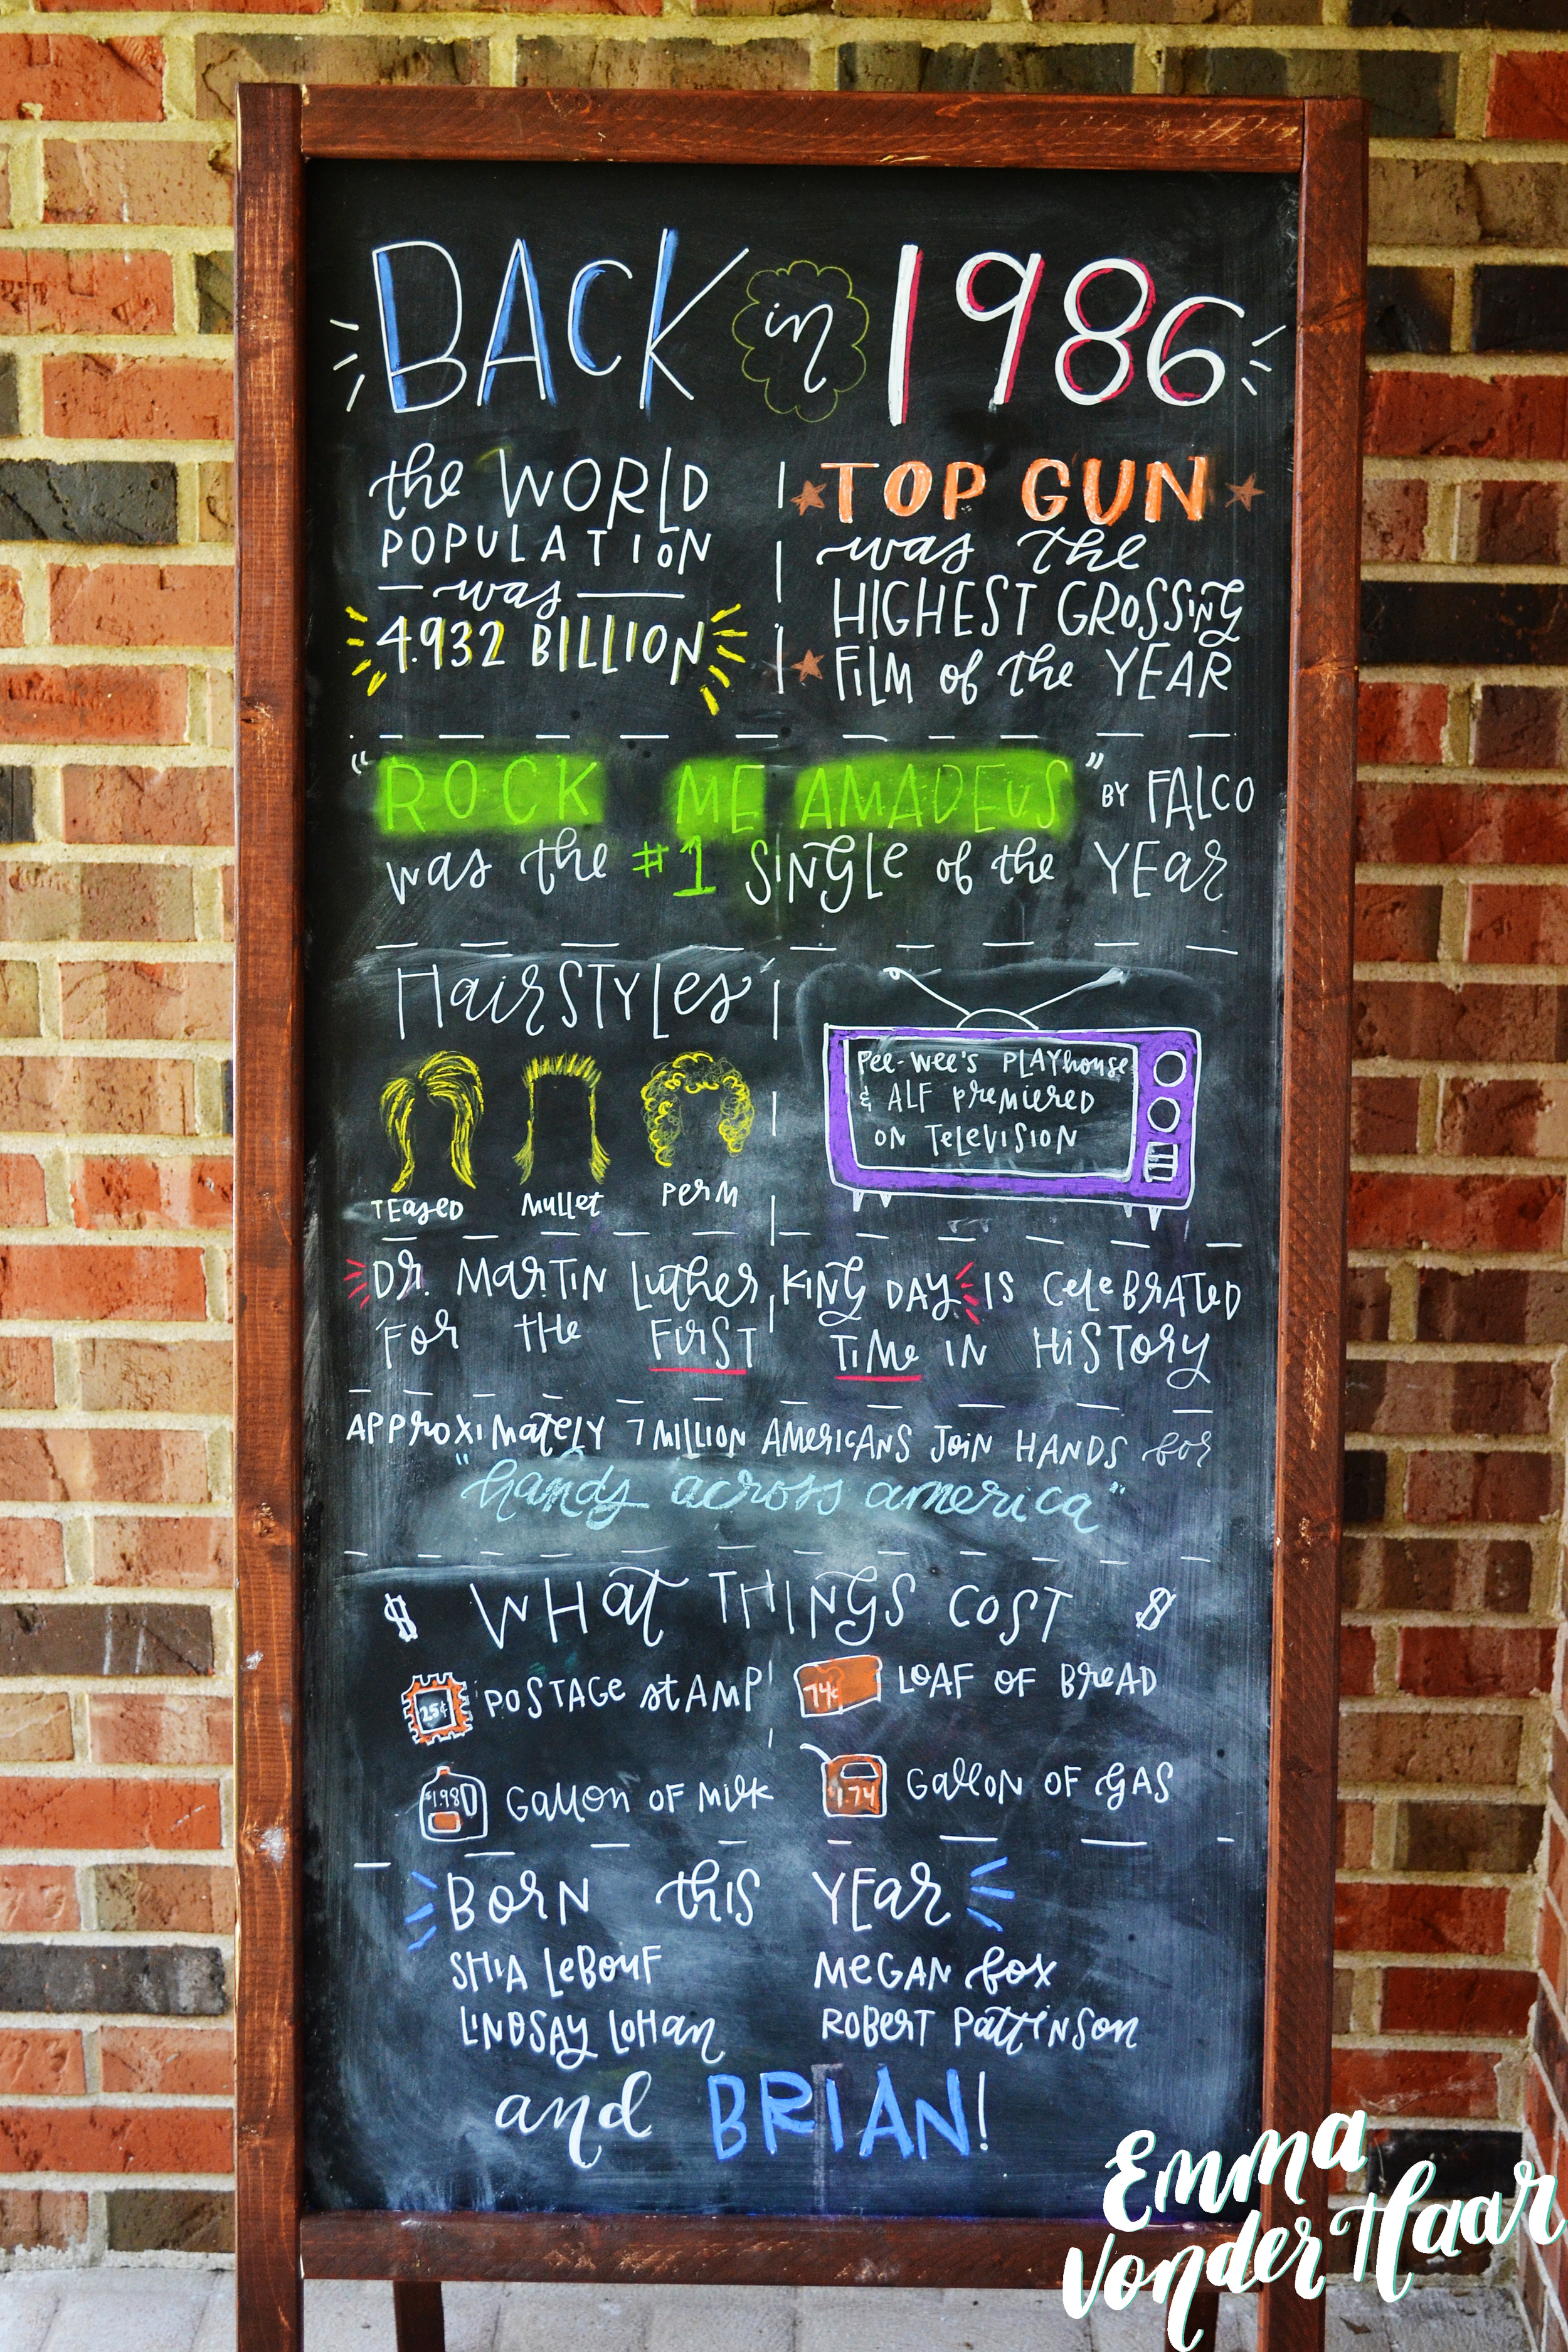 BACK in 1986
the WORLD
POPULATION
was
4.932 BILLION
TOP GUN
was the
HIGHEST GROSSING
FILM of the YEAR
"ROCK ME AMADEUS" BY FALCO
was the #1 SINGLE of the YEAR
HairSTYLes
TEased
Mullet
PerM
Pee-Wee's PLAYhouse
& ALF PreMiered
ON TeleVISION
Dr. MarTIN Luther KING DAY IS CeleBRATeD
For THe FIrST TIMe IN HiSTory
APProxiMately 7 MILLION AMerICANS JoiN HANDS for
"hands across america"
$ WHat THINGS COST $
25¢ POSTAGe stAMP
74¢ LOAF OF BreAD
$1.98 Gallon OF Milk
$1.74 GalloN OF GAS
BorN this YEar
SHIA LeBouF
MeGAN fox
LINDSAY LoHan
ROBerT PattINSon
and BRIAN!
Emma
VonderHaar